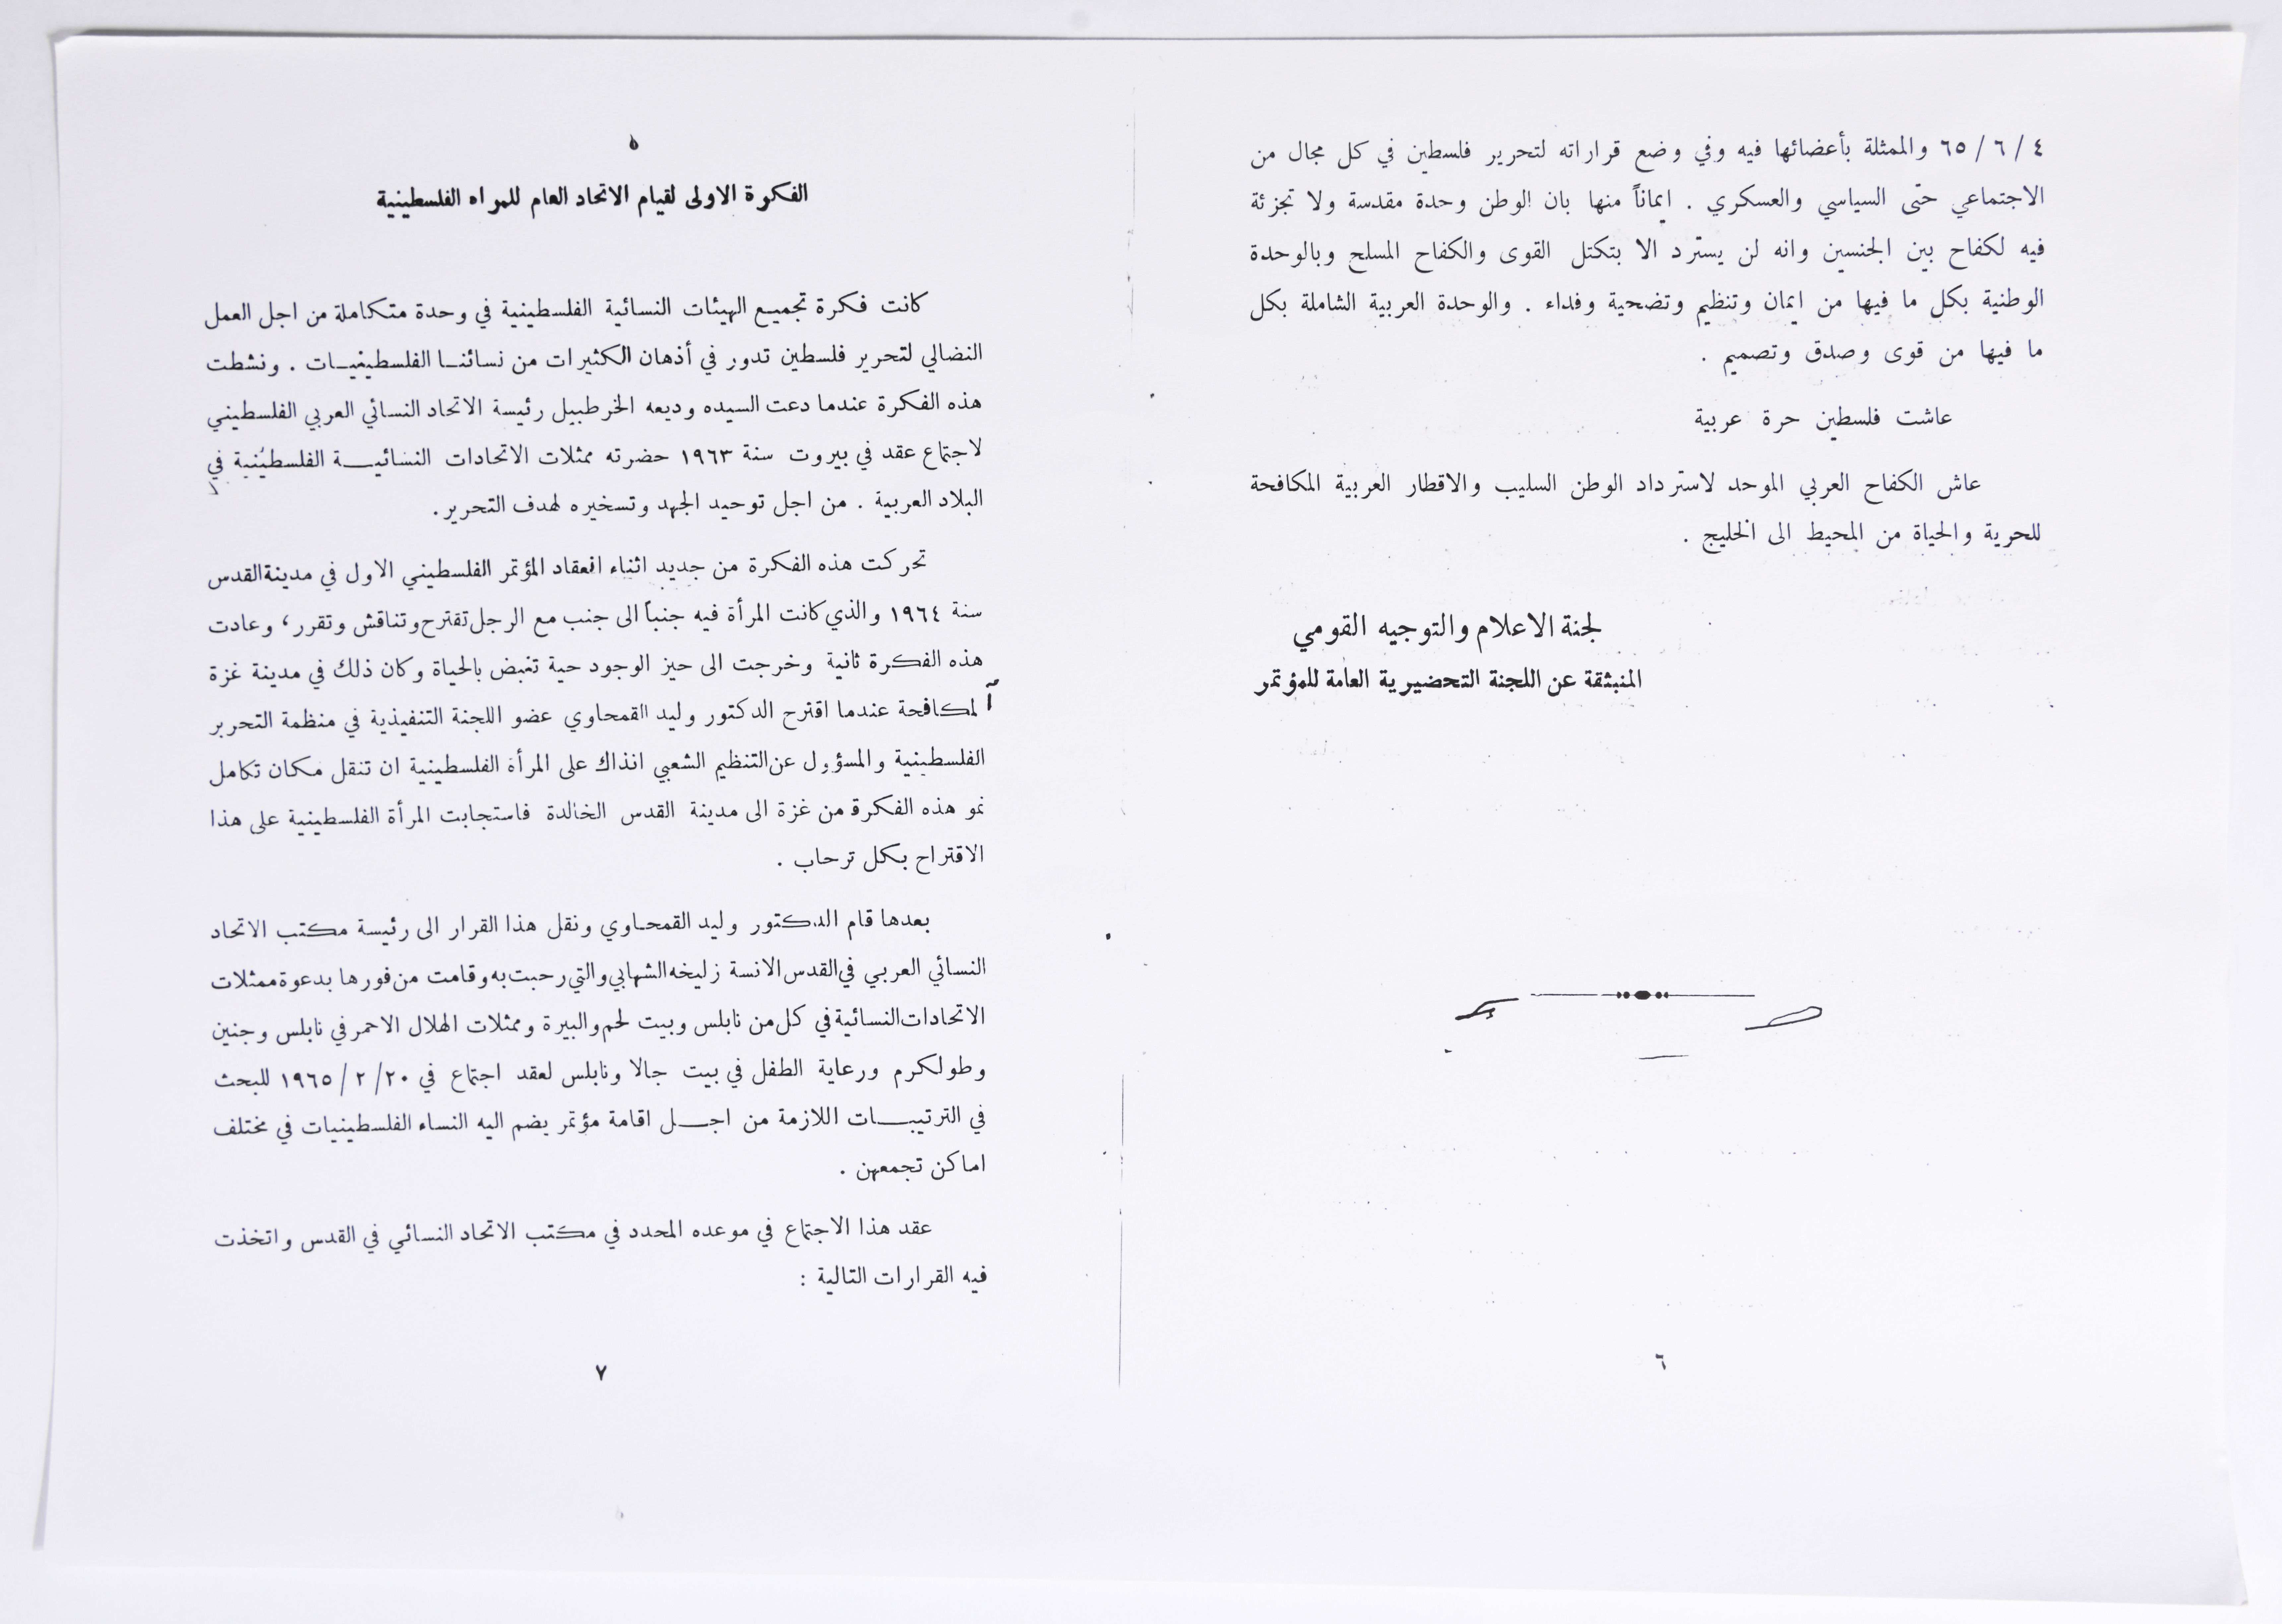 ٤ / ٦ / ٦٥ والممثلة بأعضائها فيه وفي وضع قراراته لتحرير فلسطين في كل مجال من
الاجتماعي حتى السياسي والعسكري . ايماناً منها بان الوطن وحدة مقدسة ولا تجزئة
فيه لكفاح بين الجنسين وانه لن يسترد الا بتكتل القوى والكفاح المسلح وبالوحدة
الوطنية بكل ما فيها من ايمان وتنظيم وتضحية وفداء . والوحدة العربية الشاملة بكل
ما فيها من قوى وصدق وتصميم .
عاشت فلسطين حرة عربية
عاش الكفاح العربي الموحد لاسترداد الوطن السليب والاقطار العربية المكافحة
للحرية والحياة من المحيط الى الخليج .
لجنة الاعلام والتوجيه القومي
المنبثقة عن اللجنة التحضيرية العامة للمؤتمر
٦
الفكرة الاولى لقيام الاتحاد العام للمراه الفلسطينية
كانت فكرة تجميع الهيئات النسائية الفلسطينية في وحدة متكاملة من اجل العمل
النضالي لتحرير فلسطين تدور في أذهان الكثيرات من نسائنا الفلسطينيات . ونشطت
هذه الفكرة عندما دعت السيده وديعه الخرطبيل رئيسة الاتحاد النسائي العربي الفلسطيني
لاجتماع عقد في بيروت سنة ١٩٦٣ حضرته ممثلات الاتحادات النسائية الفلسطينية في
البلاد العربية . من اجل توحيد الجهد وتسخيره لهدف التحرير .
تحركت هذه الفكرة من جديد اثناء انعقاد المؤتمر الفلسطيني الاول في مدينة القدس
سنة ١٩٦٤ والذي كانت المرأة فيه جنباً الى جنب مع الرجل تقترح وتناقش وتقرر ، وعادت
هذه الفكرة ثانية وخرجت الى حيز الوجود حية تنبض بالحياة وكان ذلك في مدينة غزة
المكافحة عندما اقترح الدكتور وليد القمحاوي عضو اللجنة التنفيذية في منظمة التحرير
الفلسطينية والمسؤول عن التنظيم الشعبي انذاك على المرأة الفلسطينية ان تنقل مكان تكامل
نمو هذه الفكرة من غزة الى مدينة القدس الخالدة فاستجابت المرأة الفلسطينية على هذا
الاقتراح بكل ترحاب .
بعدها قام الدكتور وليد القمحاوي ونقل هذا القرار الى رئيسة مكتب الاتحاد
النسائي العربي في القدس الانسة زليخه الشهابي والتي رحبت به وقامت من فورها بدعوة ممثلات
الاتحادات النسائية في كل من نابلس وبيت لحم والبيرة وممثلات الهلال الاحمر في نابلس وجنين
وطولكرم ورعاية الطفل في بيت جالا ونابلس لعقد اجتماع في ٢٠ / ٢ / ١٩٦٥ للبحث
في الترتيبات اللازمة من اجل اقامة مؤتمر يضم اليه النساء الفلسطينيات في مختلف
اماكن تجمعهن .
عقد هذا الاجتماع في موعده المحدد في مكتب الاتحاد النسائي في القدس واتخذت
فيه القرارات التالية :
٧